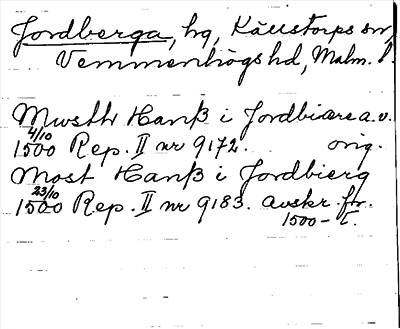 Jordberga, hg, Källstorps sn,
Vemmenhögs hd, Malm. l.
Mwsthr Hanß i Jordbiære a. v.
4/10
1500 Rep. II nr 9172. orig.
Most Hanß i Jordbierg
23/10
1500 Rep. II nr 9183. avskr. fr.
1500-t.